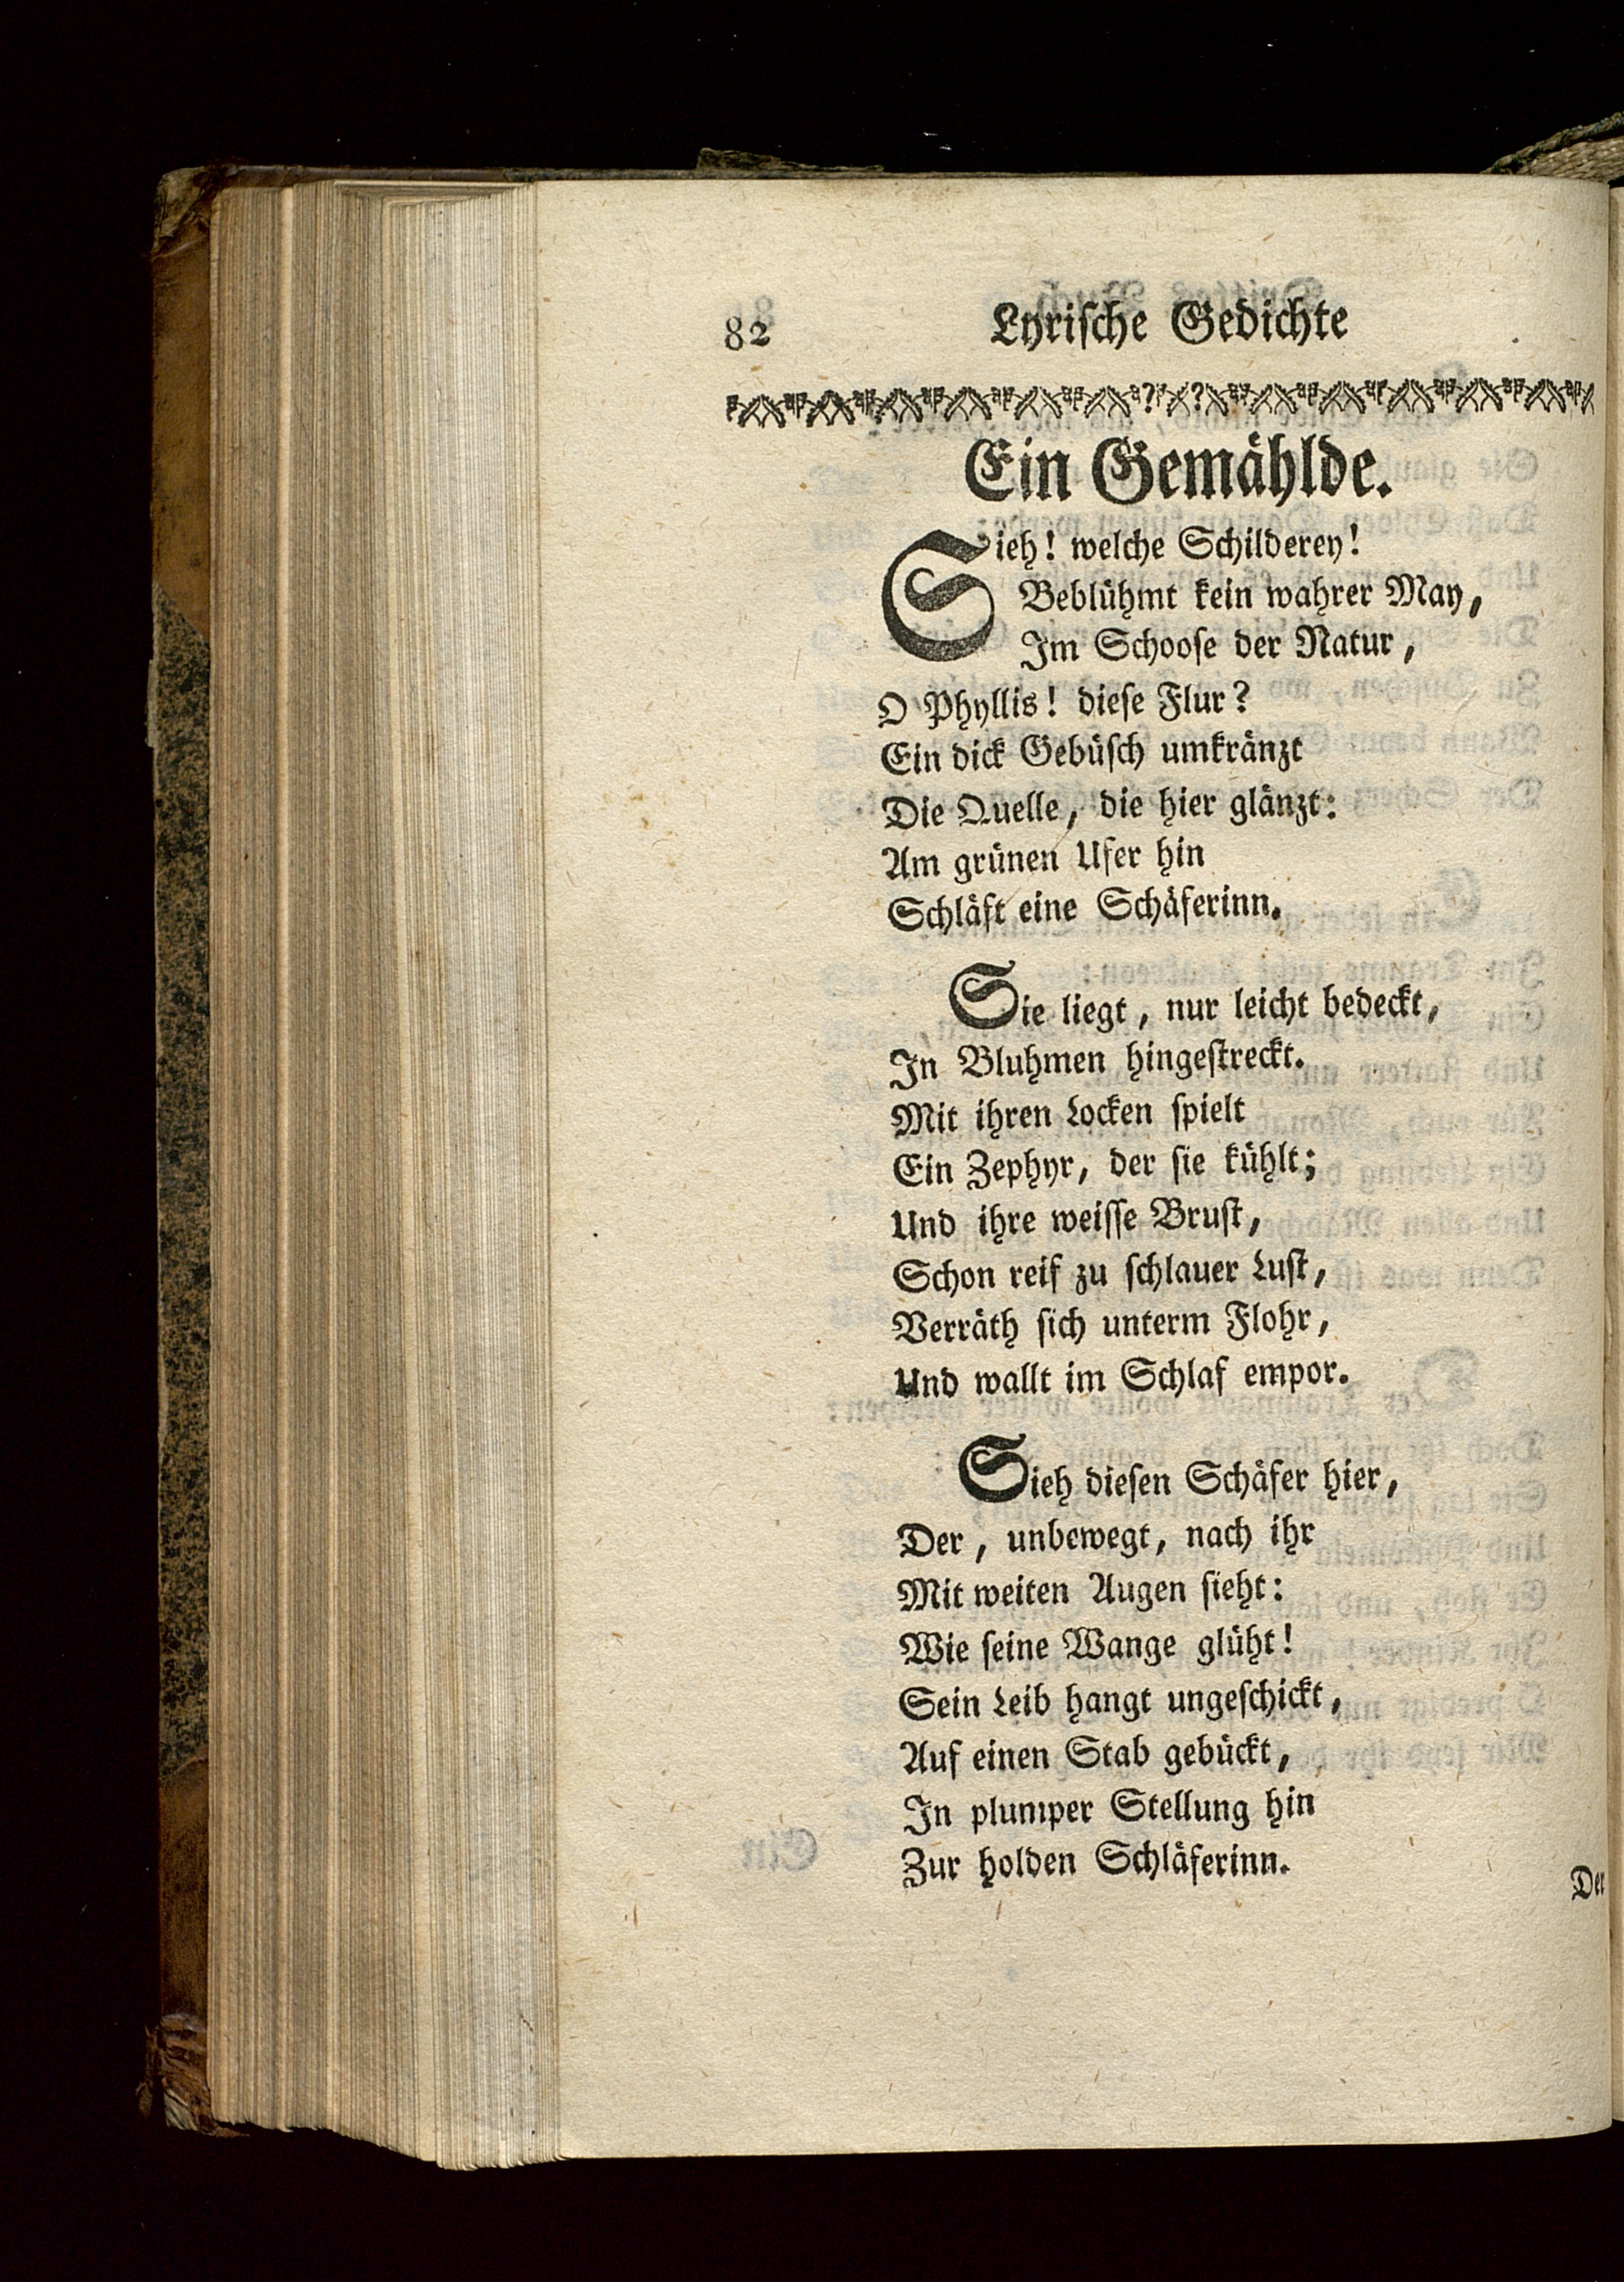 82 Lyriſche Gedichte
Ein Gemählde.
Sieh! welche Schilderey!
Beblühmt kein wahrer May,
Im Schooſe der Natur,
O Phyllis! dieſe Flur?
Ein dick Gebüſch umkränzt
Die Quelle, die hier glänzt:
Am grünen Ufer hin
Schläft eine Schäferinn.
Sie liegt, nur leicht bedeckt,
In Bluhmen hingeſtreckt.
Mit ihren Locken ſpielt
Ein Zephyr, der ſie kühlt;
Und ihre weiſſe Bruſt,
Schon reif zu ſchlauer Luſt,
Verräth ſich unterm Flohr,
Und wallt im Schlaf empor.
Sieh dieſen Schäfer hier,
Der, unbewegt, nach ihr
Mit weiten Augen ſieht:
Wie ſeine Wange glüht!
Sein Leib hangt ungeſchickt,
Auf einen Stab gebückt,
In plumper Stellung hin
Zur holden Schläferinn.
Der